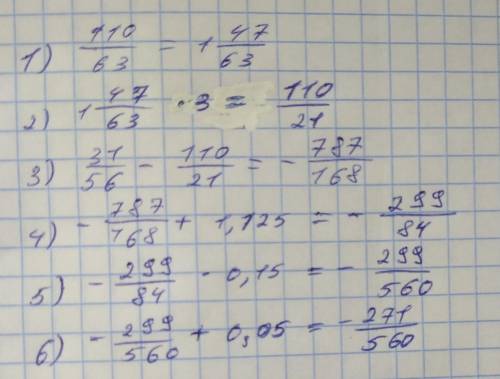 1) 110/63 = 1 47/63
2) 1 47/63 · 3 = 110/21
3) 31/56 - 110/21 = - 787/168
4) - 787/168 + 1,125 = - 299/84
5) - 299/84 · 0,15 = - 299/560
6) - 299/560 + 0,05 = - 271/560